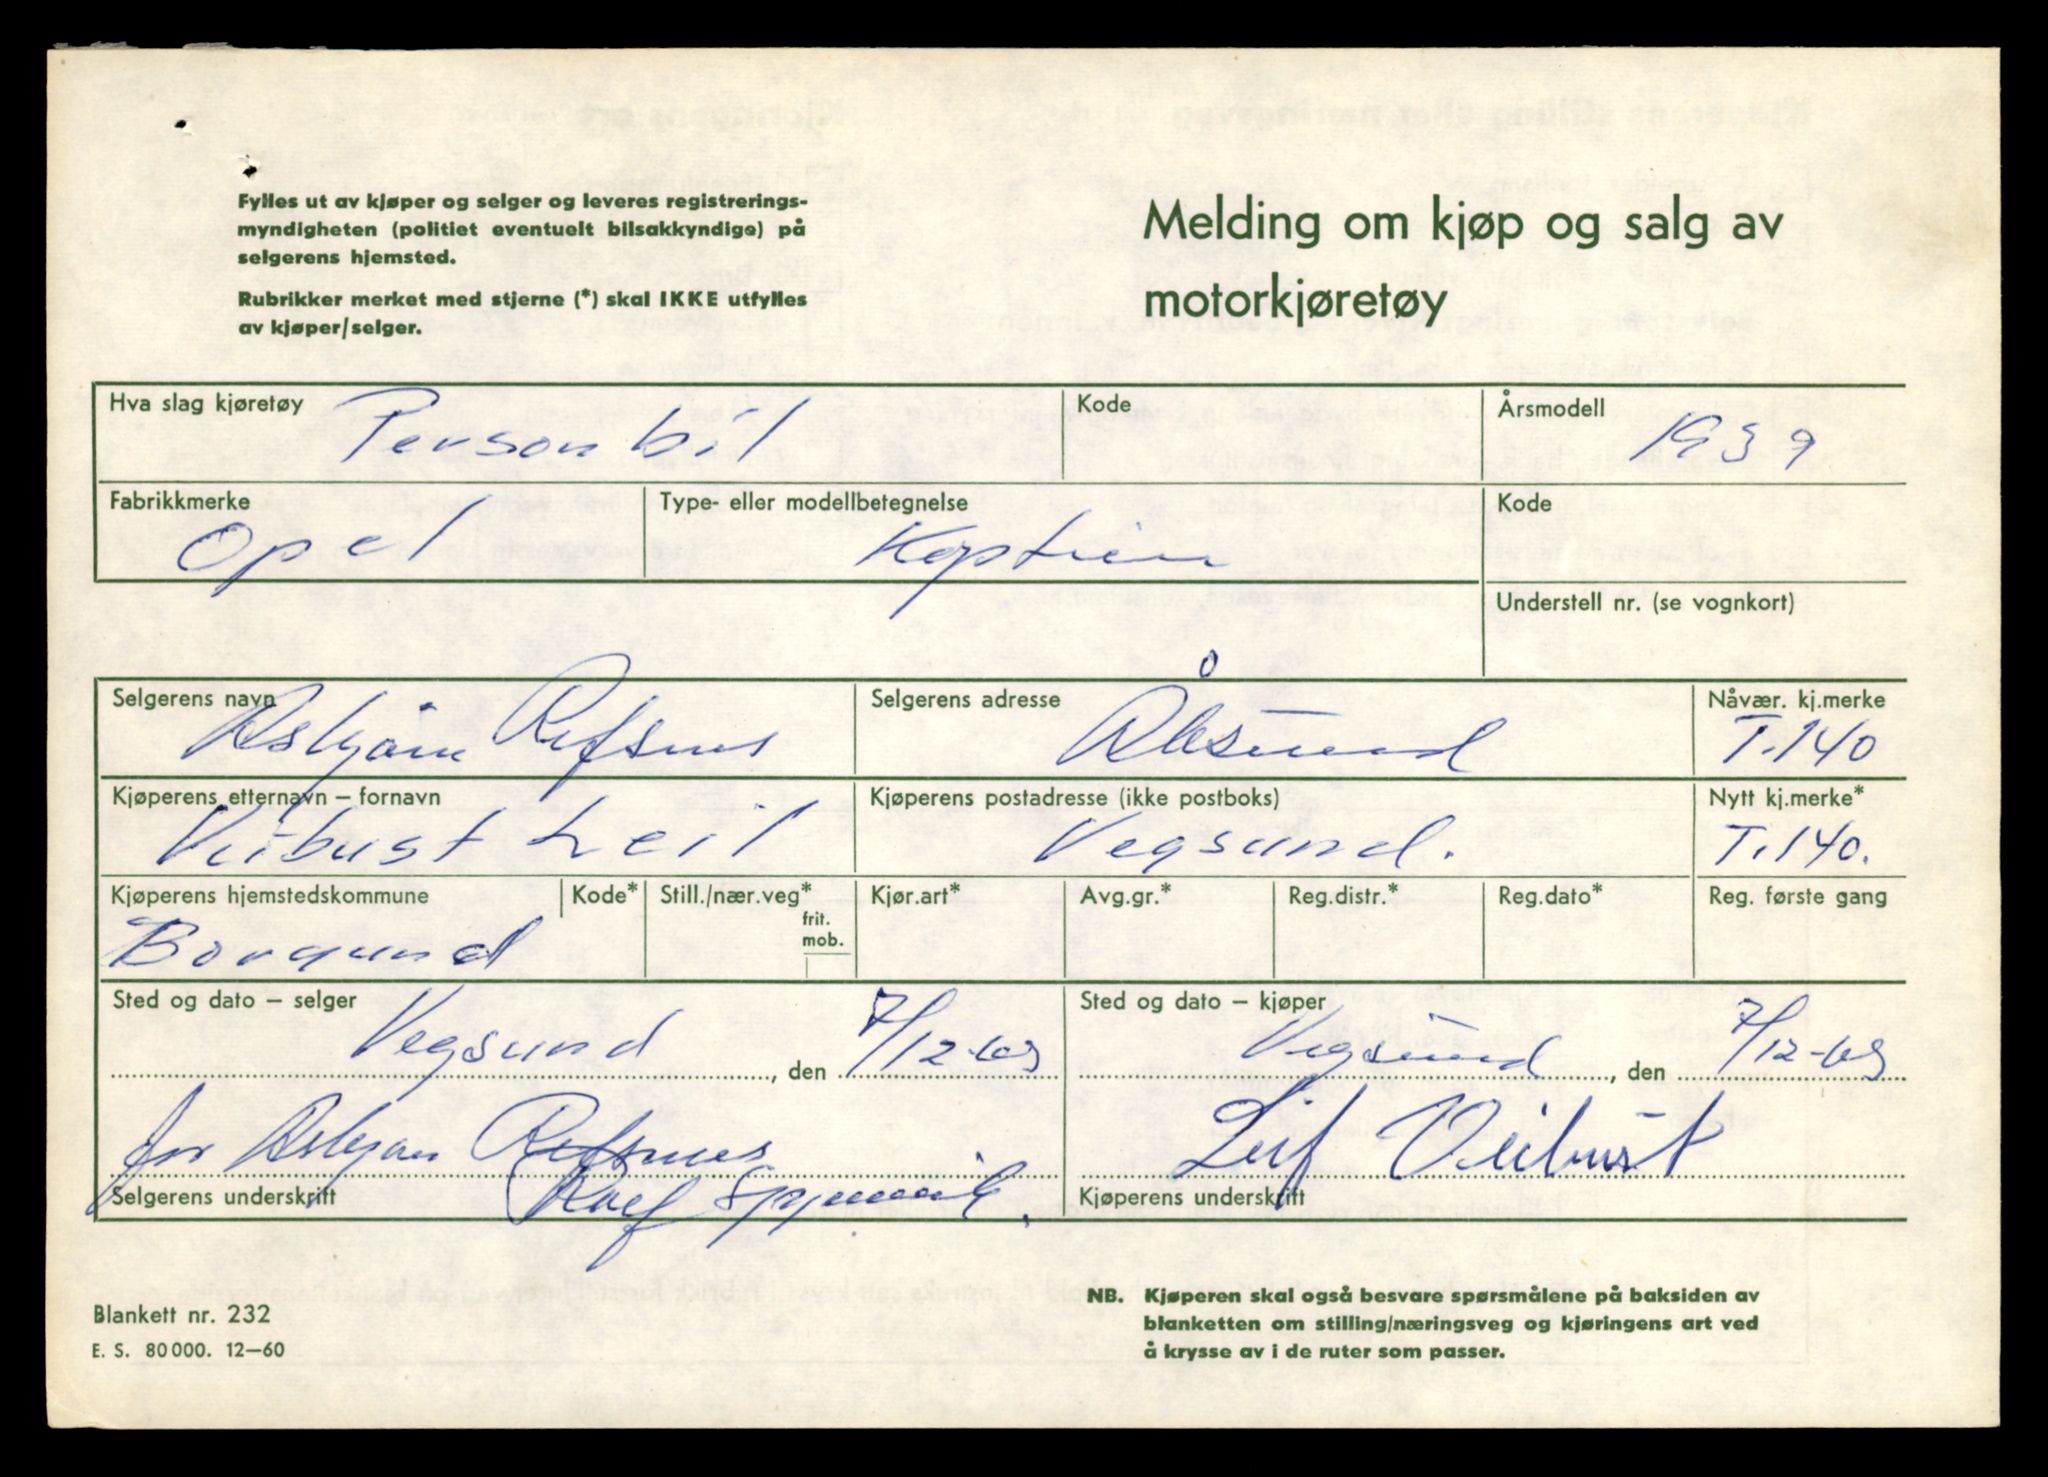 Fylles ut av kjøper og selger og leveres registrerings-
myndigheten (politiet eventuelt bilsakkyndige) på
selgerens hjemsted.
Rubrikker merket med stjerne (*) skal IKKE utfylles
av kjøper/selger.
Melding om kjøp og salg av
motorkjøretøy
Hva slag kjøretøy Personbil
Kode
Årsmodell 1939
Fabrikkmerke Opel
Type- eller modellbetegnelse
Kode
Understell nr. (se vognkort)
Selgerens navn Asbjørn Refsnes
Selgerens adresse Ålesund
Nåvær. kj.merke T.140
Kjøperens etternavn – fornavn Veibust Leif
Kjøperens postadresse (ikke postboks) Vegsund.
Nytt kj.merke* T.140.
Kjøperens hjemstedskommune Borgund
Kode*
Still./nær.veg*
frit.
mob.
Kjør.art*
Avg.gr.*
Reg.distr.*
Reg.dato*
Reg. første gang
Sted og dato – selger
Vegsund, den 7/12-63
Sted og dato – kjøper
Vegsund, den 7/12-63
for Asbjørn Refsnes
Selgerens underskrift
Leif Veibust
Kjøperens underskrift
Blankett nr. 232
E. S. 80 000. 12–60
NB. Kjøperen skal også besvare spørsmålene på baksiden av
blanketten om stilling/næringsveg og kjøringens art ved
å krysse av i de ruter som passer.